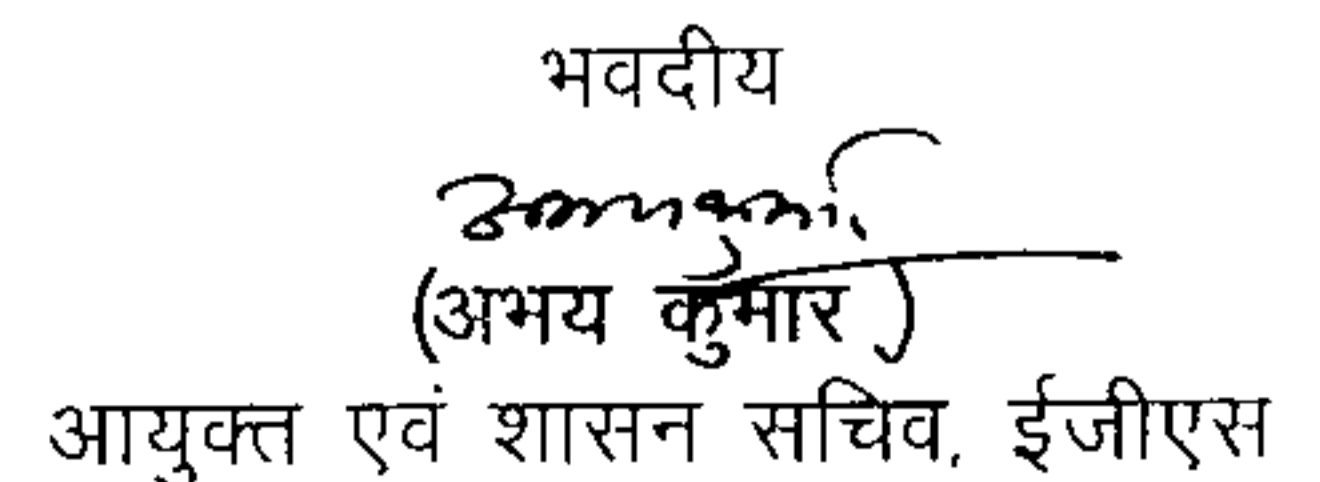 भवदीय
(अभय कुमार)
आयुक्त एवं शासन सचिव, ईजीएस